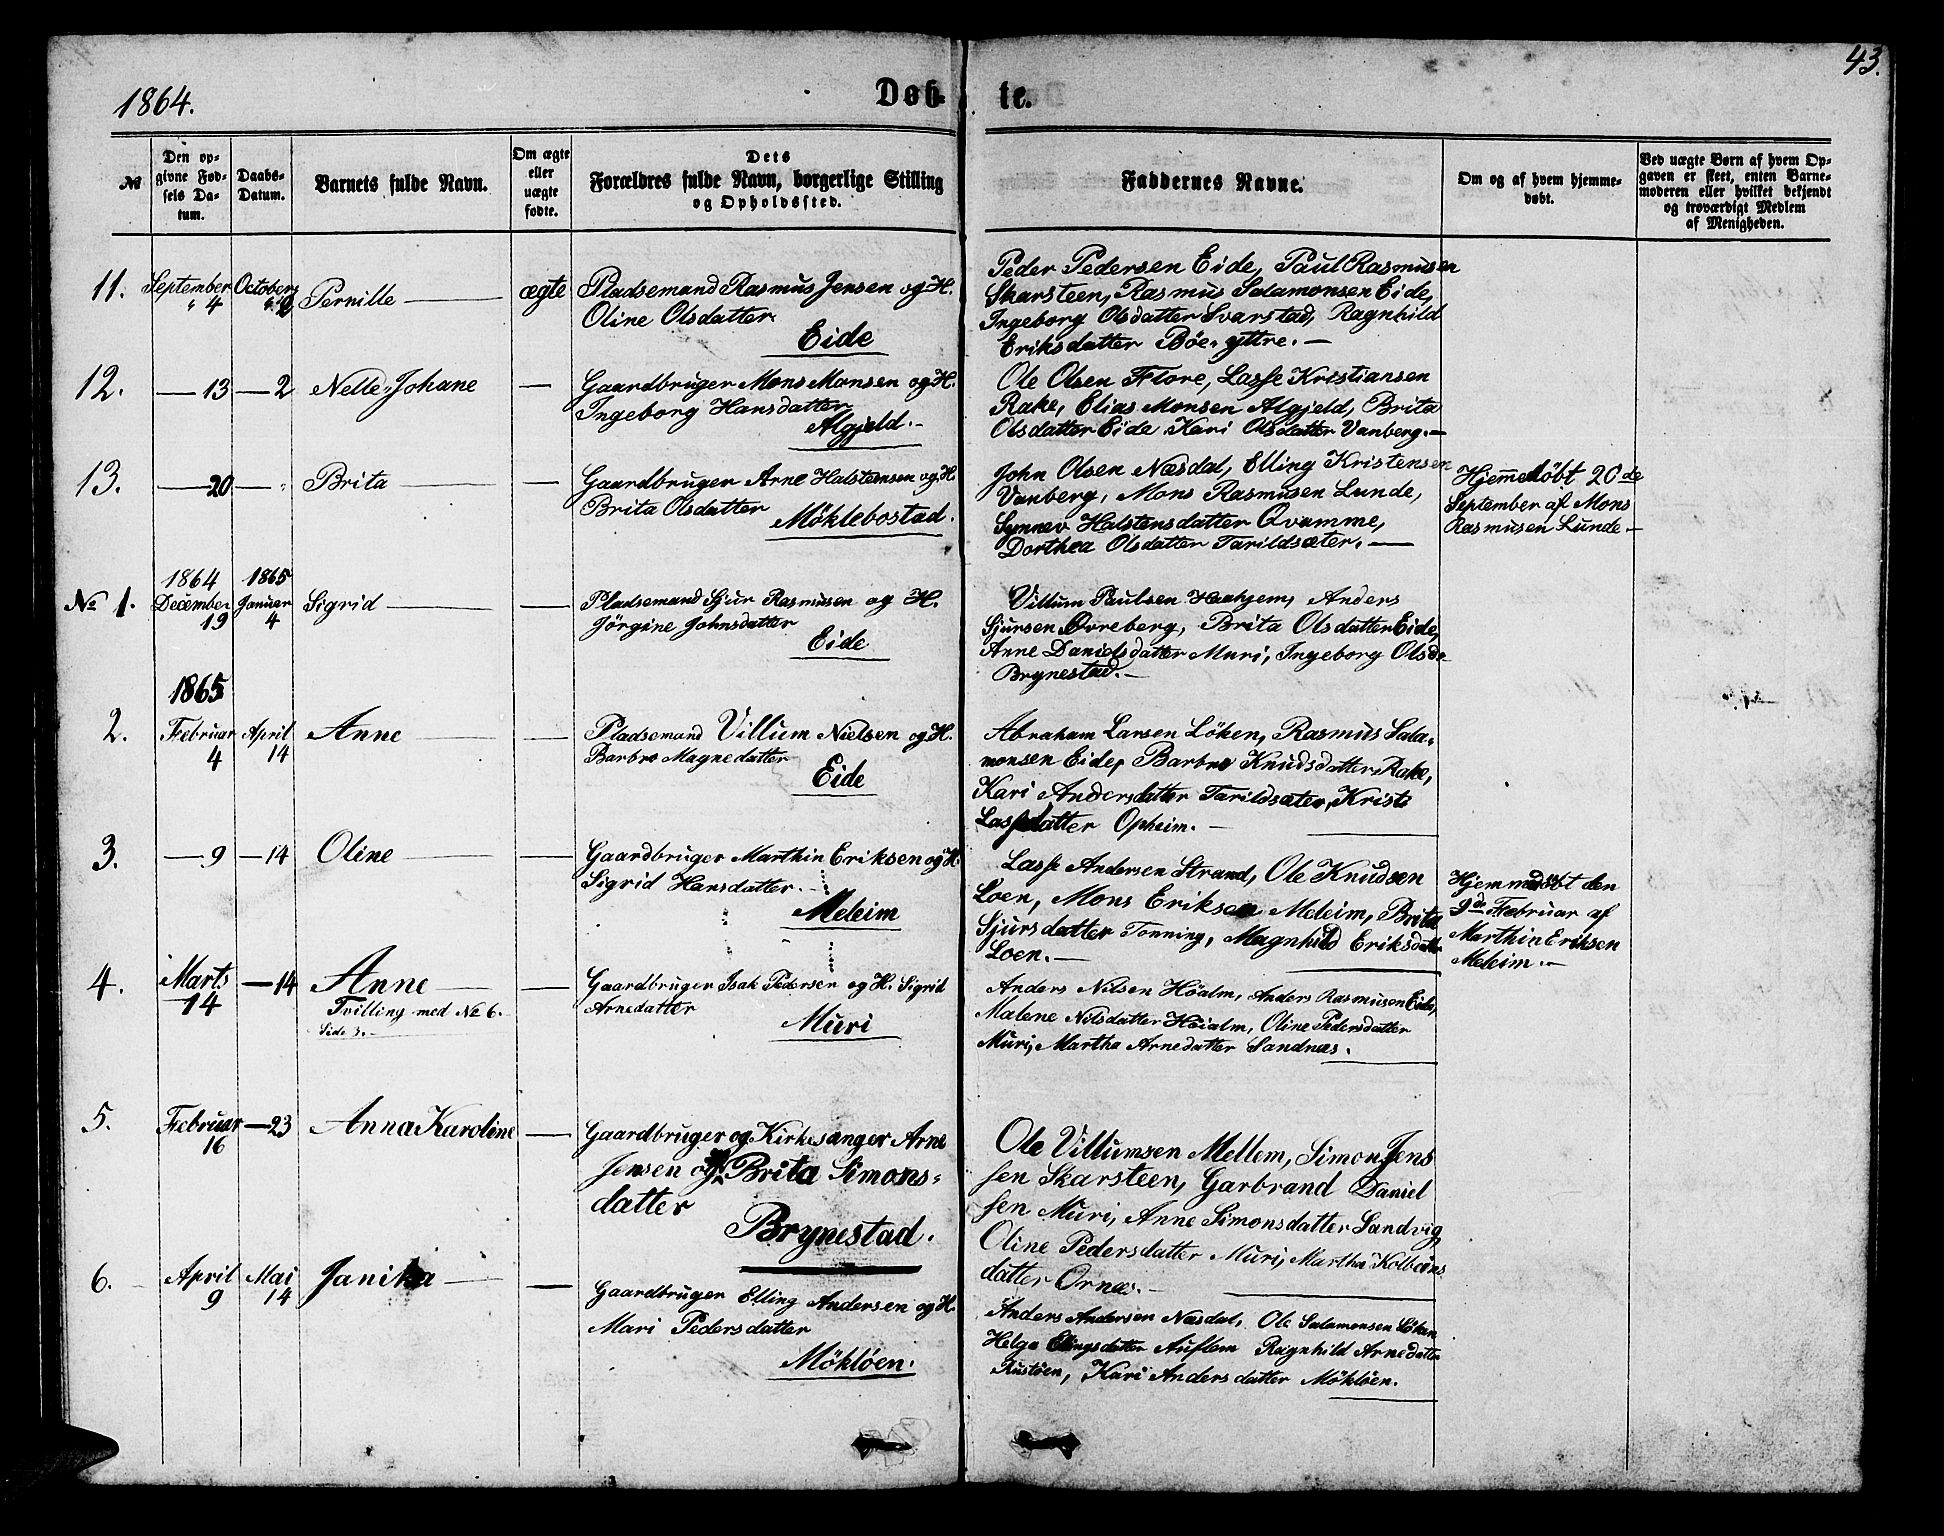 1864.
Døb-
te.
43.
№
Den op-
givne Fød-
sels Da-
tum.
Daabs-
Datum.
Barnets fulde Navn.
Om ægte
eller
uægte
fødte.
Dets
Forældres fulde Navn, borgerlige Stilling
og Opholdssted.
Faddernes Navne.
Om og af hvem hjemme-
døbt.
Ved uægte Børn af hvem Op-
gaven er skeet, enten Barne-
moderen eller hvilket bekjendt
og troværdigt Medlem
af Menigheden.
11.
September
" 4
October
2
Pernille
ægte
Pladsemand Rasmus Jensen og H.
Oline Olsdatter
Eide
Peder Pedersen Eide, Paul Rasmusen
Skarsteen, Rasmus Salamonsen Eide,
Ingeborg Olsdatter Svarstad, Ragnhild
Eriksdatter Böe, yttre. —
12.
— 13
— 2
Nelle Johane
—
Gaardbruger Mons Monsen og H.
Ingeborg Hansdatter
Algjeld. -
Ole Olsen Flore, Lasse Kristiansen
Rake, Elias Monsen Algjeld, Brita
Olsdatter Eide, Kari Olsdatter Vanberg. —
13.
— 20
— "
Brita
—
Gaardbruger Arne Halstensen og H.
Brita Olsdatter
Möklebostad.
John Olsen Næsdal, Elling Kristensen
Vanberg, Mons Rasmusen Lunde,
Synnev Halstensdatter Qvamme,
Dorthea Olsdatter Tarildsæter. —
Hjemmedøbt 20de
September af Mons
Rasmusen Lunde -
№ 1.
1864
December
19
1865
Januer
4
Sigrid
—
Pladsemand Sjur Rasmusen og H.
Jörgine Johnsdatter
Eide
Villum Paulsen Haahjem, Anders
Sjursen Øvreberg, Brita Olsdatter Eide,
Anne Danielsdatter Muri, Ingeborg Olsd-
Brynestad. -
1865
2.
Februar
4
April
14
Anne
—
Pladsemand Villum Nielsen og H.
Barbro Magnedatter
Eide
Abraham Larsen Löken, Rasmus Sala-
monsen Eide, Barbro Knudsdatter Rake,
Kari Andersdatter Tarildsæter, Kristi
Lassedatter Opheim. -
3.
— 9
— 14
Oline
—
Gaardbruger Marthin Eriksen og H.
Sigrid Hansdatter. -
Meleim
Lasse Andersen Strand, Ole Knudsen
Loen, Mons Eriksen Meleim, Brita
Sjursdatter Tonning, Magnhild Eriksdatter
Loen. -
Hjemmedøbt den
9de Februar af
Marthin Eriksen
Meleim. -
4.
Marts
14
— 14
Anne
Tvilling med № 6.
Side 3. -
—
Gaardbruger Isak Pedersen og H. Sigrid
Arnedatter
Muri
Anders Nilsen Höialm, Anders Rasmusen Eide,
Malene Nilsdatter Höialm, Oline Pedersdatter
Muri, Martha Arnedatter Sandnæs.
5.
Februar
16
— 23
Anna Karoline
—
Gaardbruger og Kirkesanger Arne
Jensen og H. Brita Simons-
datter
Brynestad.
Ole Villumsen Mellem, Simon Jens
sen Skarsteen, Garbrand Daniel
sen Muri, Anne Simonsdatter Sandvig
Oline Pedersdatter Muri, Martha Kolbeins
datter Ornæs. -
6.
April
9
Mai
14
Janika
—
Gaardbruger Elling Andersen og H.
Mari Pedersdatter
Möklöen.
Anders Andersen Næsdal, Ole Salamonsen Löken
Helga Ellingsdatter Auflem Ragnhild Arnedatter
Rustöen, Kari Andersdatter Möklöen.